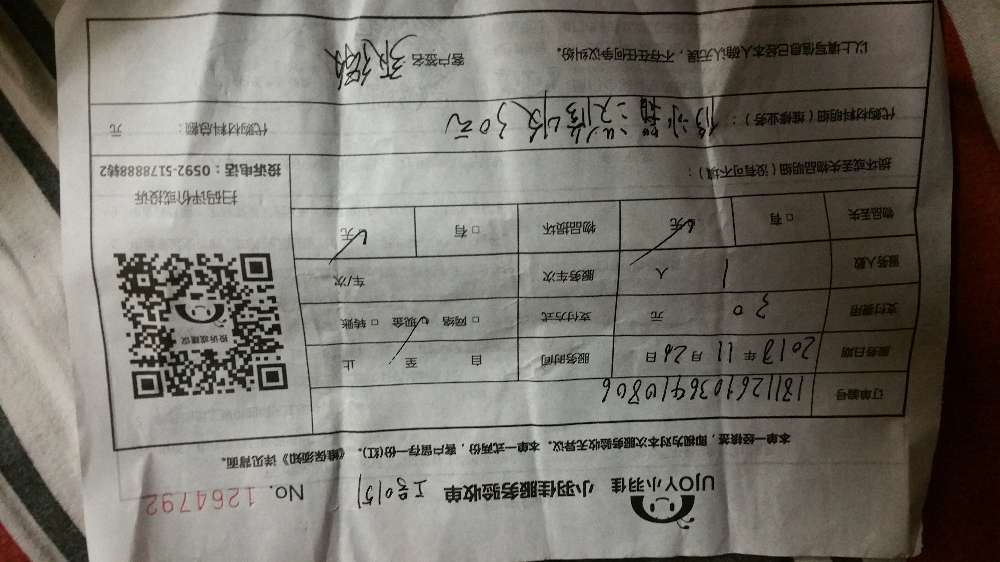 UJOY小羽佳 小羽佳服务验收单 工号015 No. 1264792
本单一经续签，即视为对本次服务验收无异议。本单一式两份，客户留存一份(红)。《维保须知》详见背面。
订单编号 18112610364910806
服务日期 2018年11月26日 服务时间 自 至 止
支付费用 30 元 支付方式 □网络 ☑现金 □转账
服务人数 1 人 服务车次 车/次
物品丢失 □有 ☑无 物品损坏 □有 ☑无
投诉或建议
扫码评价或投诉
投诉电话：0592-5178888转2
损坏或丢失物品明细（没有可不填）：
代购材料明细（维修业务）：修冰箱没修收30元 代购材料总额： 元
以上填写信息已经本人确认无误，不存在任何争议纠纷。 客户签名